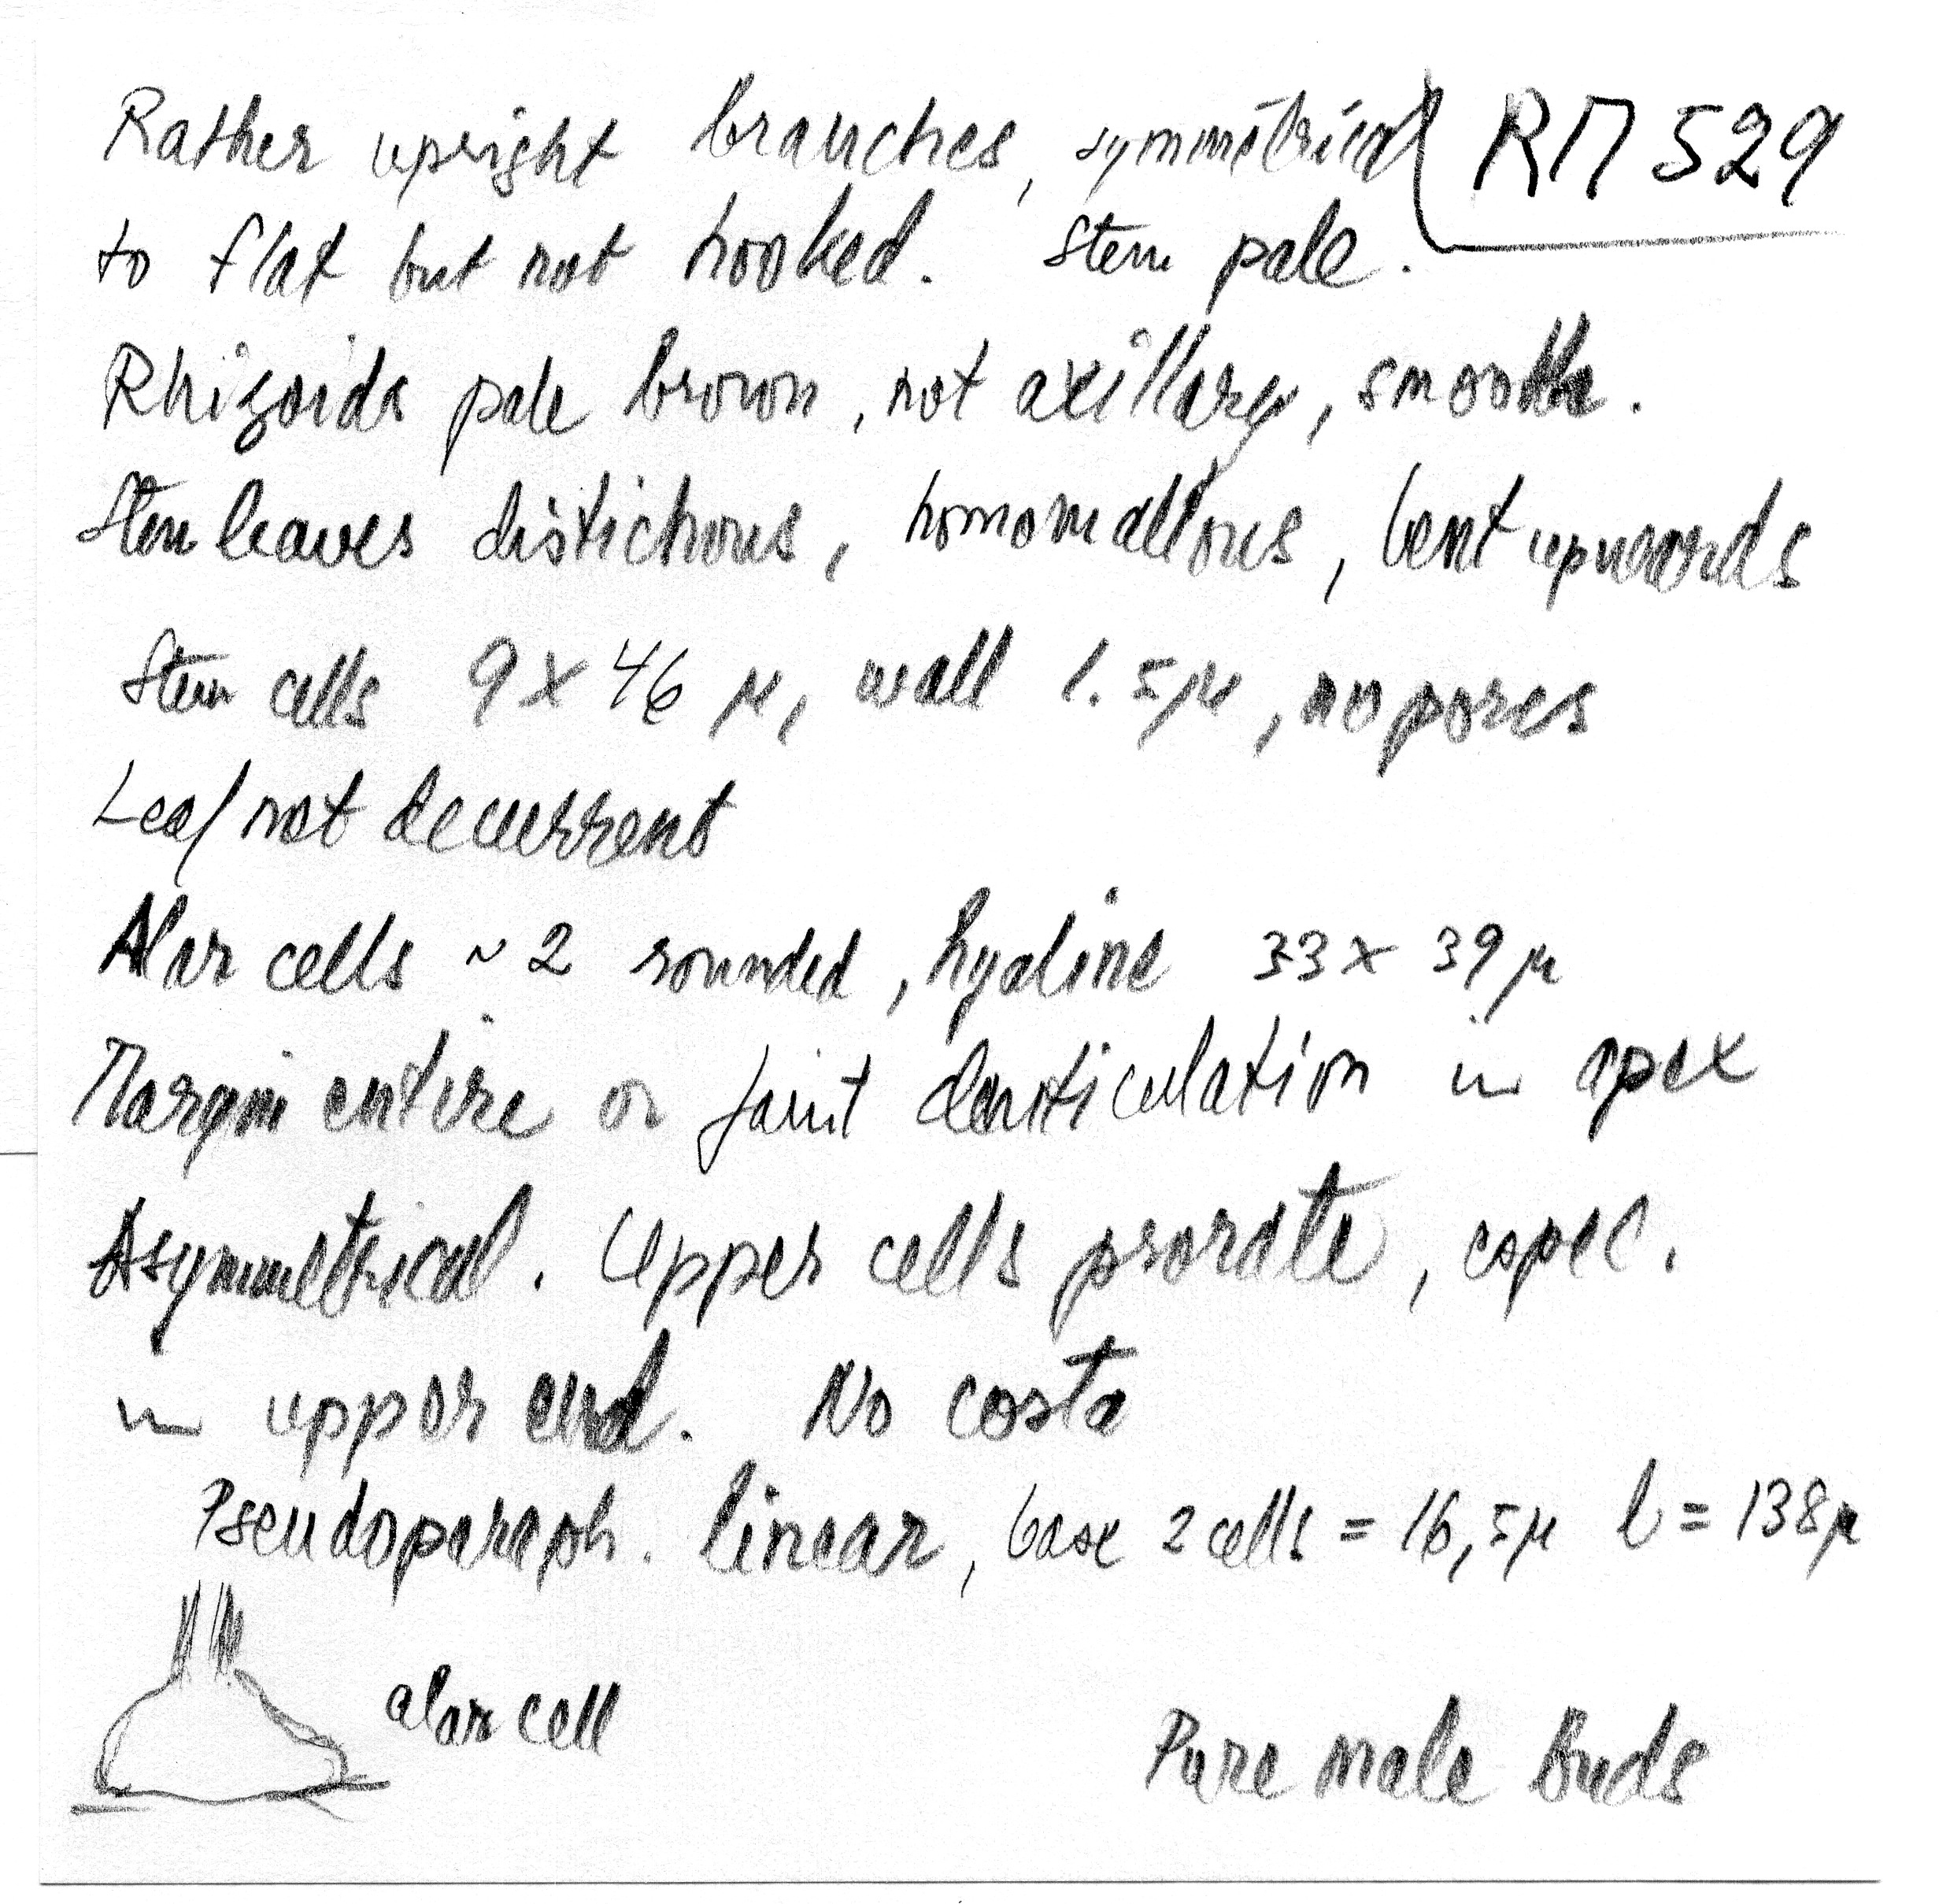 Rather upright branches, symmetrical
RM 529
to flat but not hooked. Stem pale.
Rhizoids pale brown, not axillary, smooth.
Stem leaves distichous, homomallous, bent upwards
Stem cells 9 x 46 μ, wall 1.5 μ, no pores
Leaf not decurrent
Alar cells ~ 2 rounded, hyaline 33 x 39 μ
Margin entire or faint denticulation in apex
Asymmetrical. Upper cells prorate, espec.
in upper end. No costa
Pseudoparaph. linear, base 2 cells = 16,5 μ l = 138 μ
alar cell
Pure male Buds